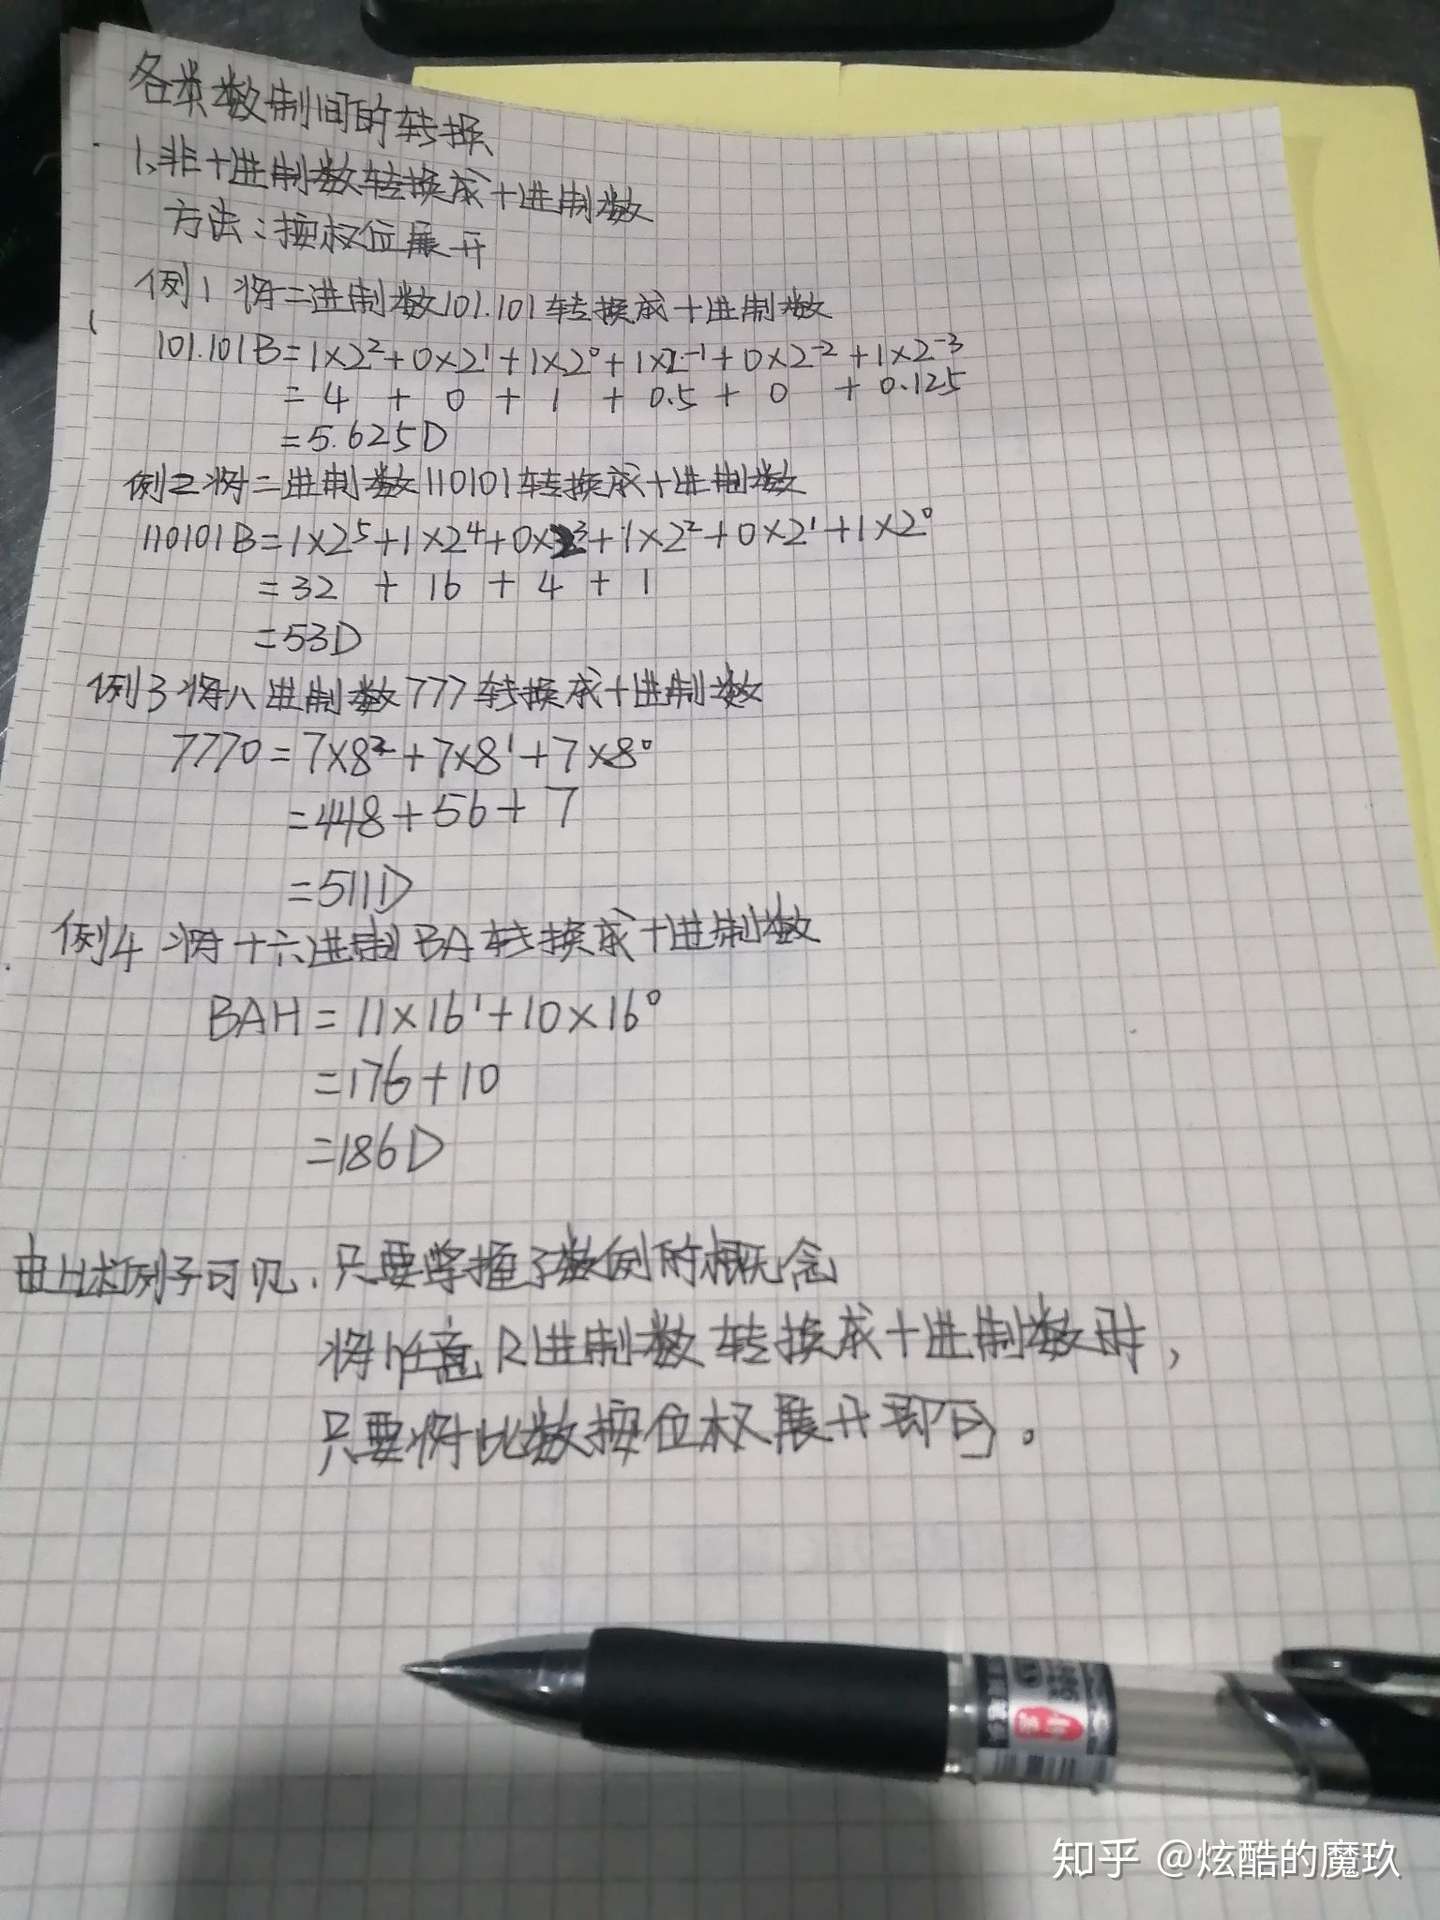 各类数制间的转换
1、非十进制数转换成十进制数
方法：按权位展开
例1 将二进制数101.101转换成十进制数
101.101B=1×2²+0×2¹+1×2⁰+1×2⁻¹+0×2⁻²+1×2⁻³
=4+0+1+0.5+0+0.125
=5.625D
例2将二进制数110101转换成十进制数
110101B=1×2⁵+1×2⁴+0×2³+1×2²+0×2¹+1×2⁰
=32+16+4+1
=53D
例3将八进制数777转换成十进制数
777O=7×8²+7×8¹+7×8⁰
=448+56+7
=511D
例4 将十六进制BA转换成十进制数
BAH=11×16¹+10×16⁰
=176+10
=186D
由上述例子可见，只要掌握了数例的概念
将任意R进制数转换成十进制数时，
只要将此数按位权展开即可。
知乎 @炫酷的魔玖